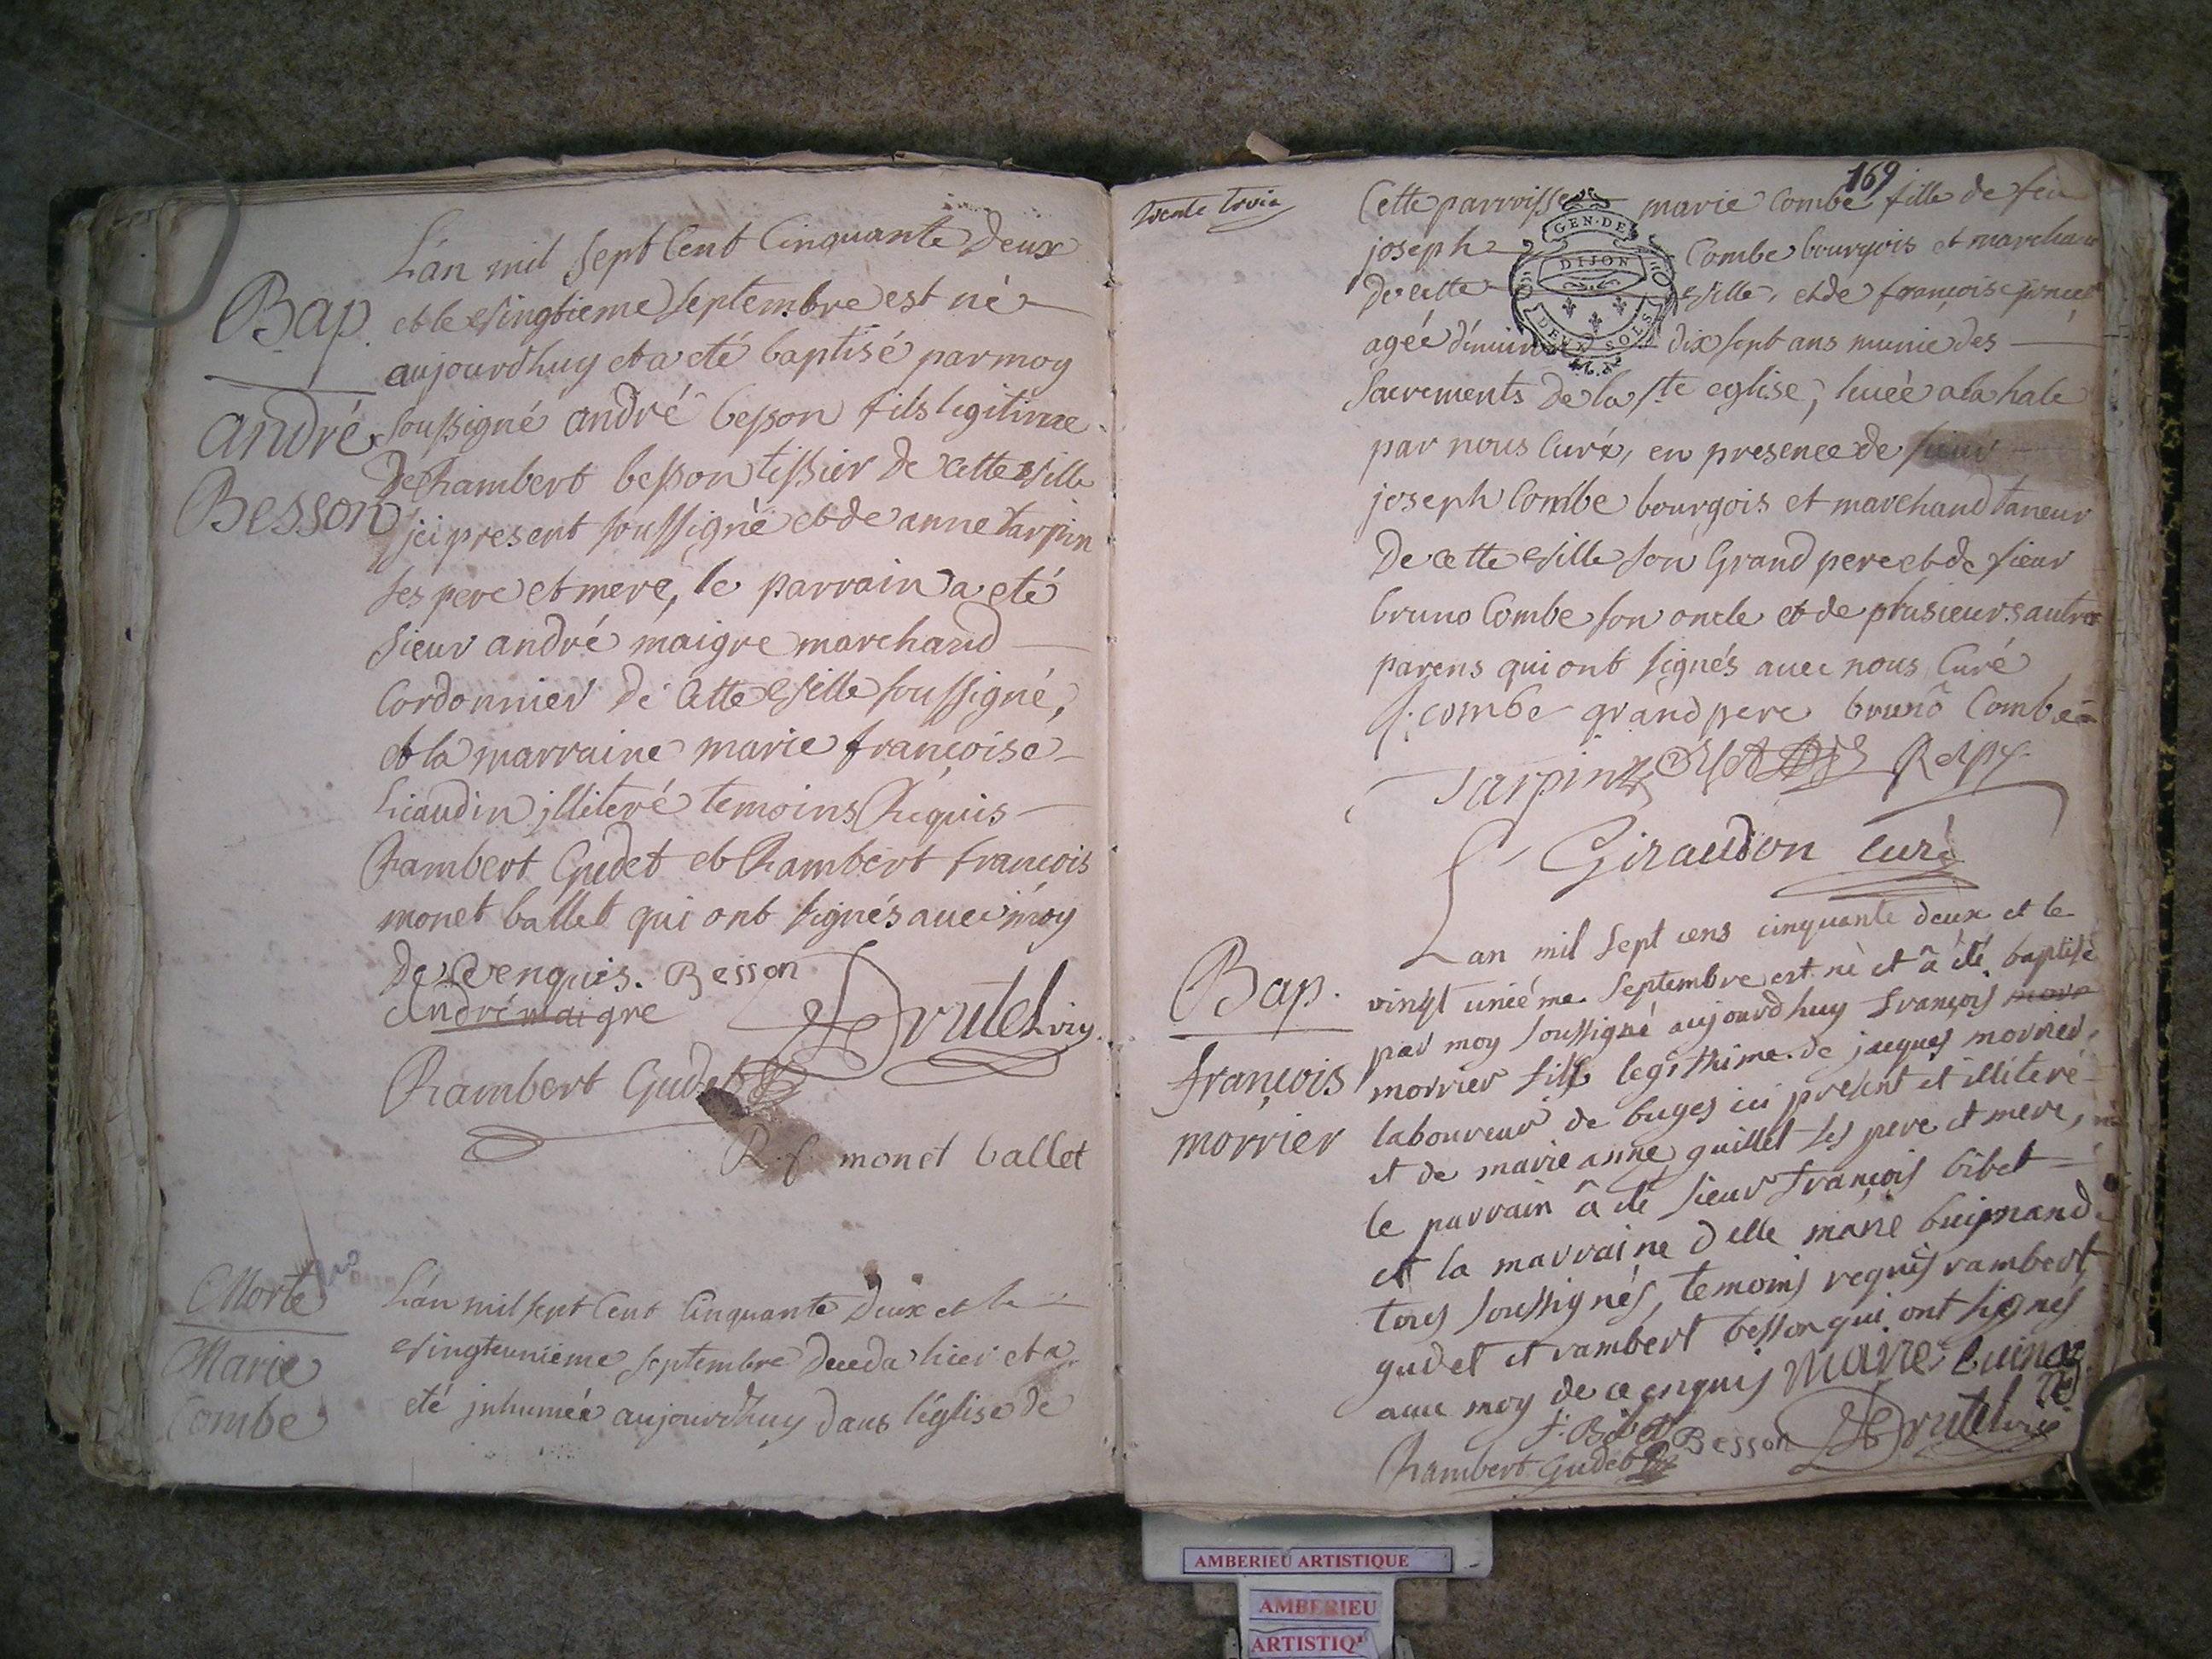 L'an mil sept Cent Cinquante Deux
Bap. et le vingtieme septembre est né
aujourdhuy et a eté baptisé par moy
andré soussigné andré besson fils legitime
de Rambert besson tissier de cette ville
Besson ici present soussigné et de anne tarpin
ses pere et mere, le parrain a eté
sieur andré maigre marchand
Cordonnier de Cette ville soussigné,
et la marraine marie françoise
jlliteré temoins Requis
Rambert Gudet et Rambert françois
monet ballet qui ont signés avec moy
De Ce enquis. Besson
André maigre Drutel vic.
Rambert Gudet
R. f. monet ballet
Morte L'an mil sept Cent Cinquante Deux et le
Marie vingteunieme septembre deceda hier et a
Combe eté jnhumée aujourdhuy dans l'église de
169
trente trois
Cette parroisse marie Combe fille de feu
joseph Combe bourgois et marchand
De cette ville, et de françoise
agéé d'environ dix sept ans munie des
Sacrements De la ste eglise, levée a la hale
par nous Curé, en presence de sieur
joseph Combe bourgois et marchand taneur
De cette ville son Grand pere et de sieur
bruno Combe son oncle et de plusieurs autres
parens qui ont signés avec nous Curé
J. combe grand pere bruno Combe
Tarpin
Giraudon Curé
GEN. DE
DIJON
DEUX SOLS
L'an mil sept cens cinquante deux et le
Bap. vingt unieéme Septembre est né et â été baptisé
par moy soussigné aujourdhuy françois
françois morrier fils legithime de jacques morrier
morrier laboureur de buges ici present et illiteré
et de marie anne guillet ses pere et mere,
le parrain â été sieur françois bibet
et la marraine d elle marie
tous soussignés, temoins requis rambert
gudet et rambert besson qui ont signes
avec moy de ce enquis Marie
f. Bibet Besson Drutel vic
Rambert Gudet
AMBERIEU ARTISTIQUE
AMBERIEU
ARTISTIQ